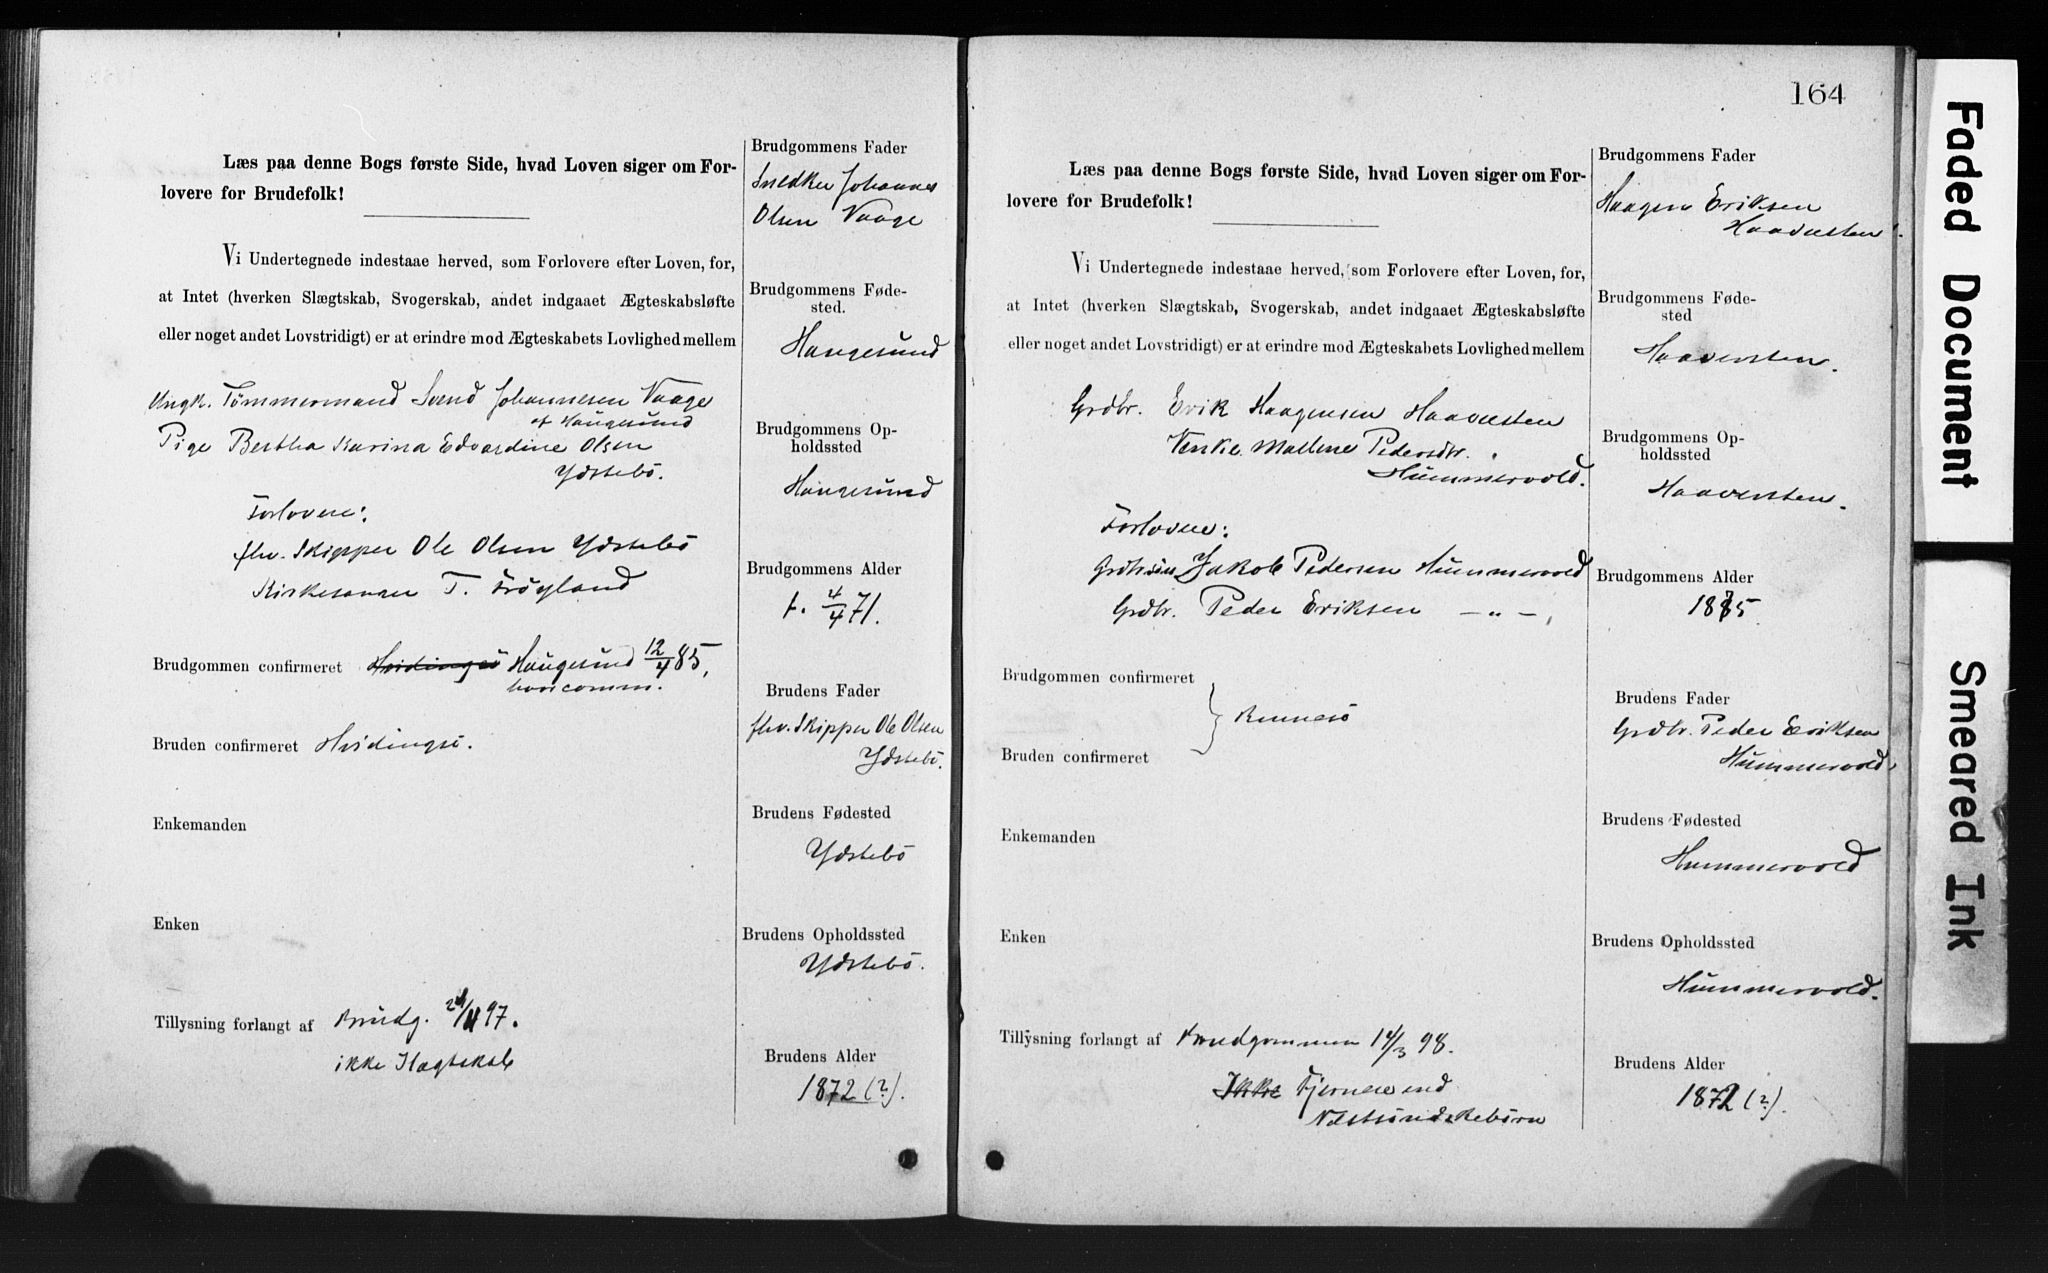 Læs paa denne Bogs første Side, hvad Loven siger om For-
lovere for Brudefolk!
Vi Undertegnede indestaae herved, som Forlovere efter Loven, for,
at Intet (hverken Slægtskab, Svogerskab, andet indgaaet Ægteskabsløfte
eller noget andet Lovstridigt) er at erindre mod Ægteskabets Lovlighed mellem
Ungk. Tömmermand Svend Johannesen Vaage
af Haugesund
Pige Bertha Karina Edvardine Olsen
Ydstebö.
Forlovere:
fhv. Skipper Ole Olsen Ydstebö
Kirkesanger T. Fröyland
Brudgommen confirmeret Hvidingsö Haugesund 12/4 85,
Bruden confirmeret Hvidingsö.
Enkemanden
Enken
Tillysning forlangt af Brudg. 97.
ikke Slægtskab
Brudgommens Fader
Snedker Johannes
Olsen Vaage
Brudgommens Føde-
sted.
Haugesund
Brudgommens Op-
holdssted
Haugesund
Brudgommens Alder
f. 4/4 71.
Brudens Fader
fhv. Skipper Ole Olsen
Ydstebö.
Brudens Fødested
Ydstebö
Brudens Opholdssted
Ydstebö.
Brudens Alder
1872 (?).
164
Læs paa denne Bogs første Side, hvad Loven siger om For-
lovere for Brudefolk!
Vi Undertegnede indestaae herved, som Forlovere efter Loven, for,
at Intet (hverken Slægtskab, Svogerskab, andet indgaaet Ægteskabsløfte
eller noget andet Lovstridigt) er at erindre mod Ægteskabets Lovlighed mellem
Grdbr. Erik Haagensen Haavesten
Malene Pedersdtr.
Hummervold.
Forlovere:
Jakob Pedersen Hummervold
Grdbr. Peder Eriksen — „ —
Brudgommen confirmeret
Rennesö
Bruden confirmeret
Enkemanden
Enken
Tillysning forlangt af Brudgommen 14/3 98.
Ikke Fjernere end
Næstsöndskebörn
Brudgommens Fader
Haagen Eriksen
Haavesten.
Brudgommens Føde-
sted
Haavesten.
Brudgommens Op-
holdssted
Haavesten.
Brudgommens Alder
1875
Brudens Fader
Grdbr. Peder Eriksen
Hummervold.
Brudens Fødested
Hummervold
Brudens Opholdssted
Hummervold.
Brudens Alder
1872 (?).
Faded Document
Smeared Ink